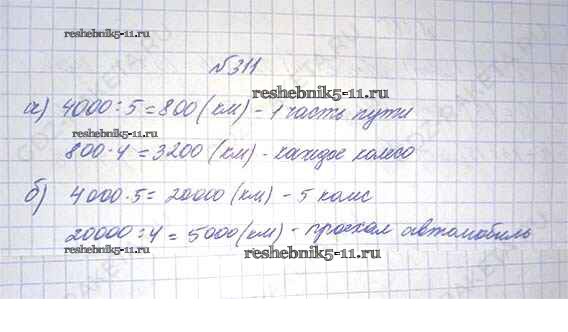 reshebnik5-11.ru
№311
reshebnik5-11.ru
а) 4000:5=800(км) - 1 часть пути
reshebnik5-11.ru
800·4=3200 (км) - каждое колесо
б) 4000·5=20000 (км) - 5 колёс
20000:4=5000(км) - проехал автомобиль
reshebnik5-11.ru
reshebnik5-11.ru